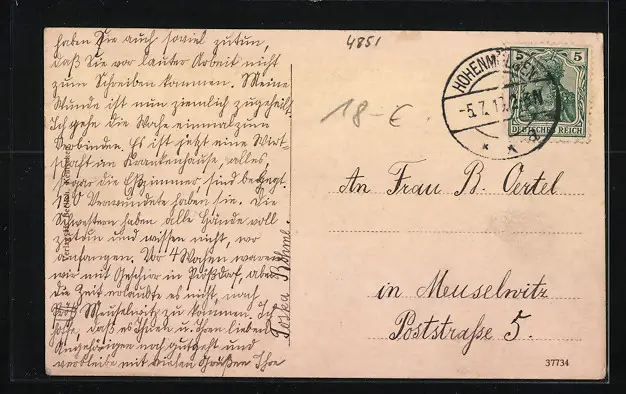 haben Sie auch soviel zutun,
daß Sie vor lauter Arbeit nicht
zum Schreiben kommen. Meine
Wunde ist nun ziemlich zugeheilt.
Ich gehe die Woche einmal zum
Verbinden. Es ist jetzt eine Wirt-
schaft im Krankenhause, alles,
sogar die Eßzimmer sind belegt.
180 Verwundete haben sie. Die
Schwestern haben alle Hände voll
zutun und wissen nicht, wo
anfangen. Vor 4 Wochen waren
wir mit Geschirr in aber
die Zeit erlaubte es nicht, nach
Meuselwitz zu kommen. Ich
hoffe, daß es Ihnen u. Ihren lieben
Angehörigen noch gutgeht und
verbleibe mit vielen Grüßen Ihre
Toska Böhme.
4851
18-€
HOHENMÖLSEN
-5.7.17
a
5
DEUTSCHES REICH
An Frau B. Oertel
in Meuselwitz
Poststraße 5.
37734